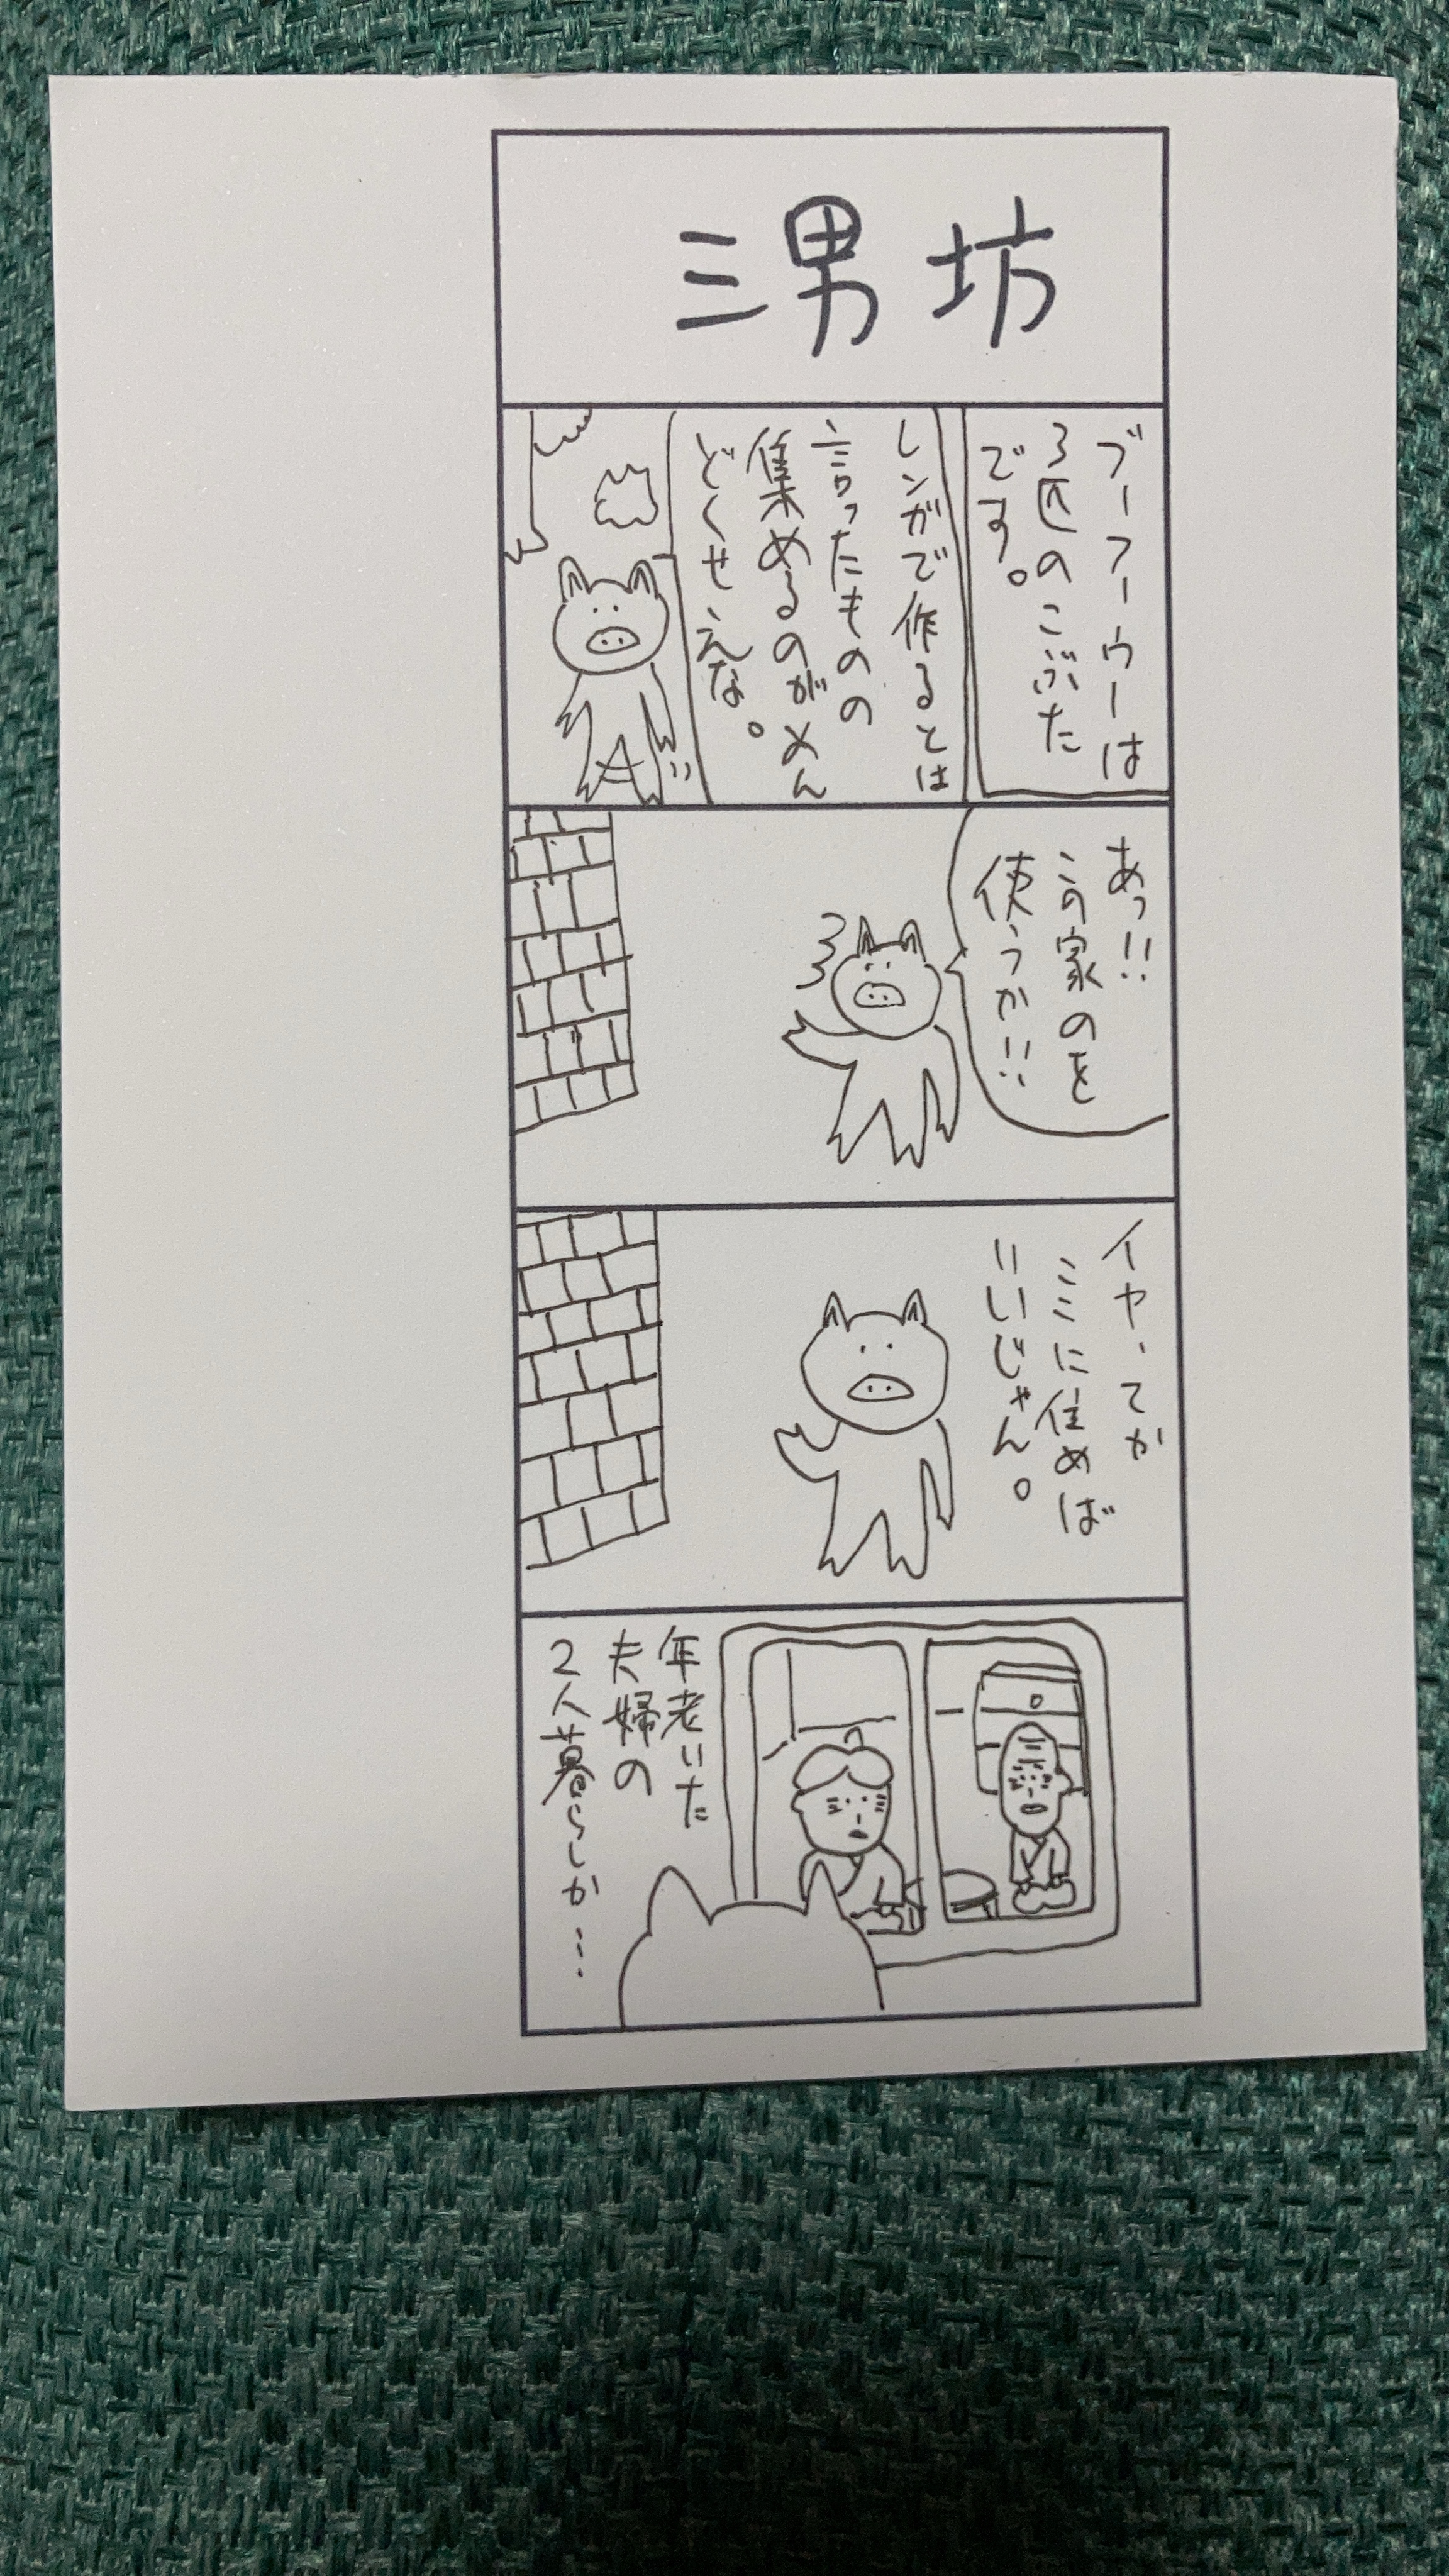 三男坊
ブーフーウーは
3匹のこぶた
です。
レンガで作るとは
言ったものの
集めるのがめん
どくせえな。
あっ!!
この家のを
使うか!!
イヤ、てか
ここに住めば
いいじゃん。
年老いた
夫婦の
2人暮らしか…